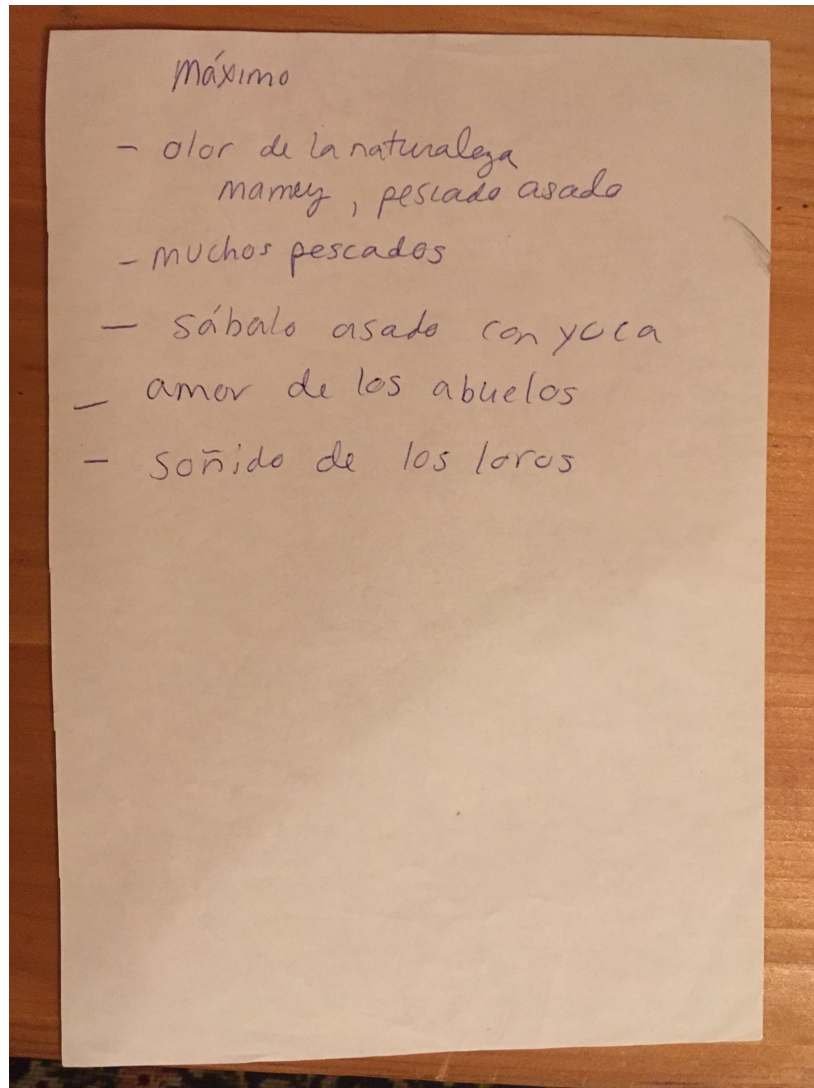 Máximo
- olor de la naturaleza
mamey, pescado asado
- muchos pescados
- sábalo asado con yuca
- amor de los abuelos
- soñido de los loros